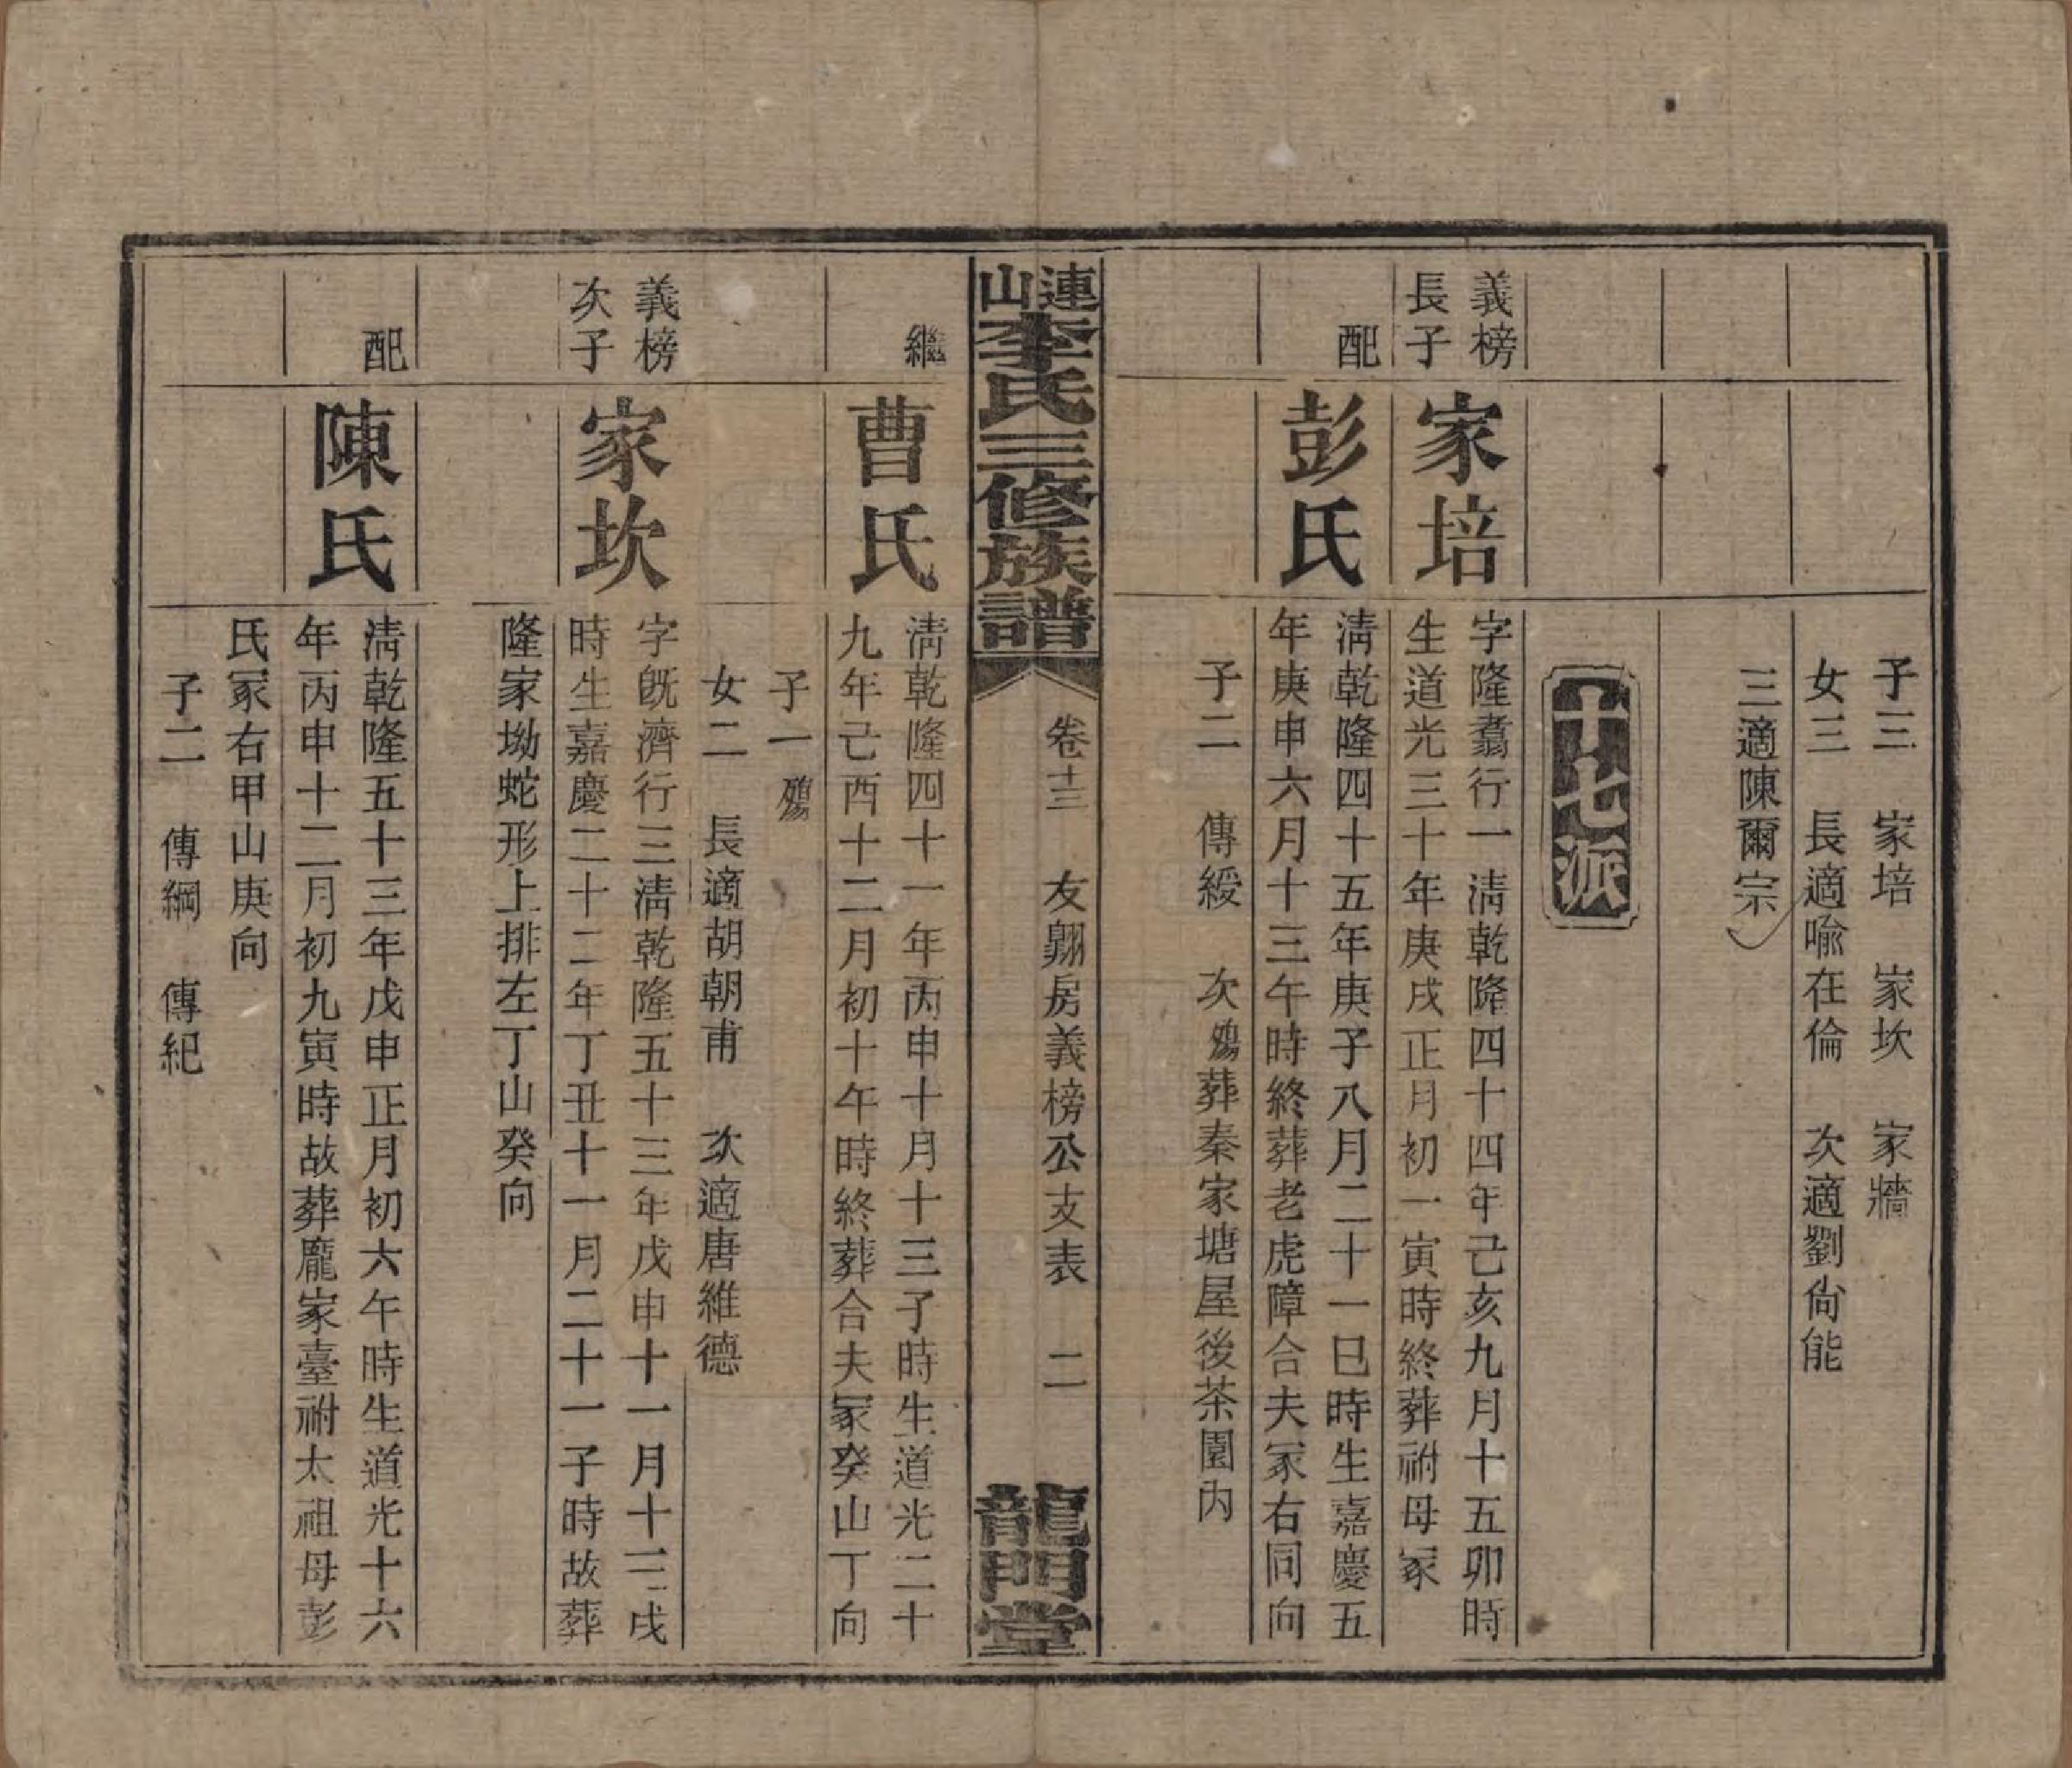 子三　家培　家坎　家牆
女三　長適喩在倫　次適劉尙能
三適陳爾宗
十七派
義榜
長子
家培
字隆翥行一清乾隆四十四年己亥九月十五卯時
生道光三十年庚戌正月初一寅時終葬祔母冢
配
彭氏
清乾隆四十五年庚子八月二十一巳時生嘉慶五
年庚申六月十三午時終葬老虎障合夫冢右同向
子二　傳綬　次殤葬秦家塘屋後茶園內
連山李氏三修族譜
卷十三　友翺房義榜公支表　二
龍門堂
繼
曹氏
清乾隆四十一年丙申十月十三子時生道光二十
九年己酉十二月初十午時終葬合夫冢癸山丁向
子一　殤
女二　長適胡朝甫　次適唐維德
義榜
次子
家坎
字旣濟行三清乾隆五十三年戊申十一月十三戌
時生嘉慶二十二年丁丑十一月二十一子時故葬
隆家坳蛇形上排左丁山癸向
配
陳氏
清乾隆五十三年戊申正月初六午時生道光十六
年丙申十二月初九寅時故葬龐家臺祔太祖母彭
氏冢右甲山庚向
子二　傳綱　傳紀